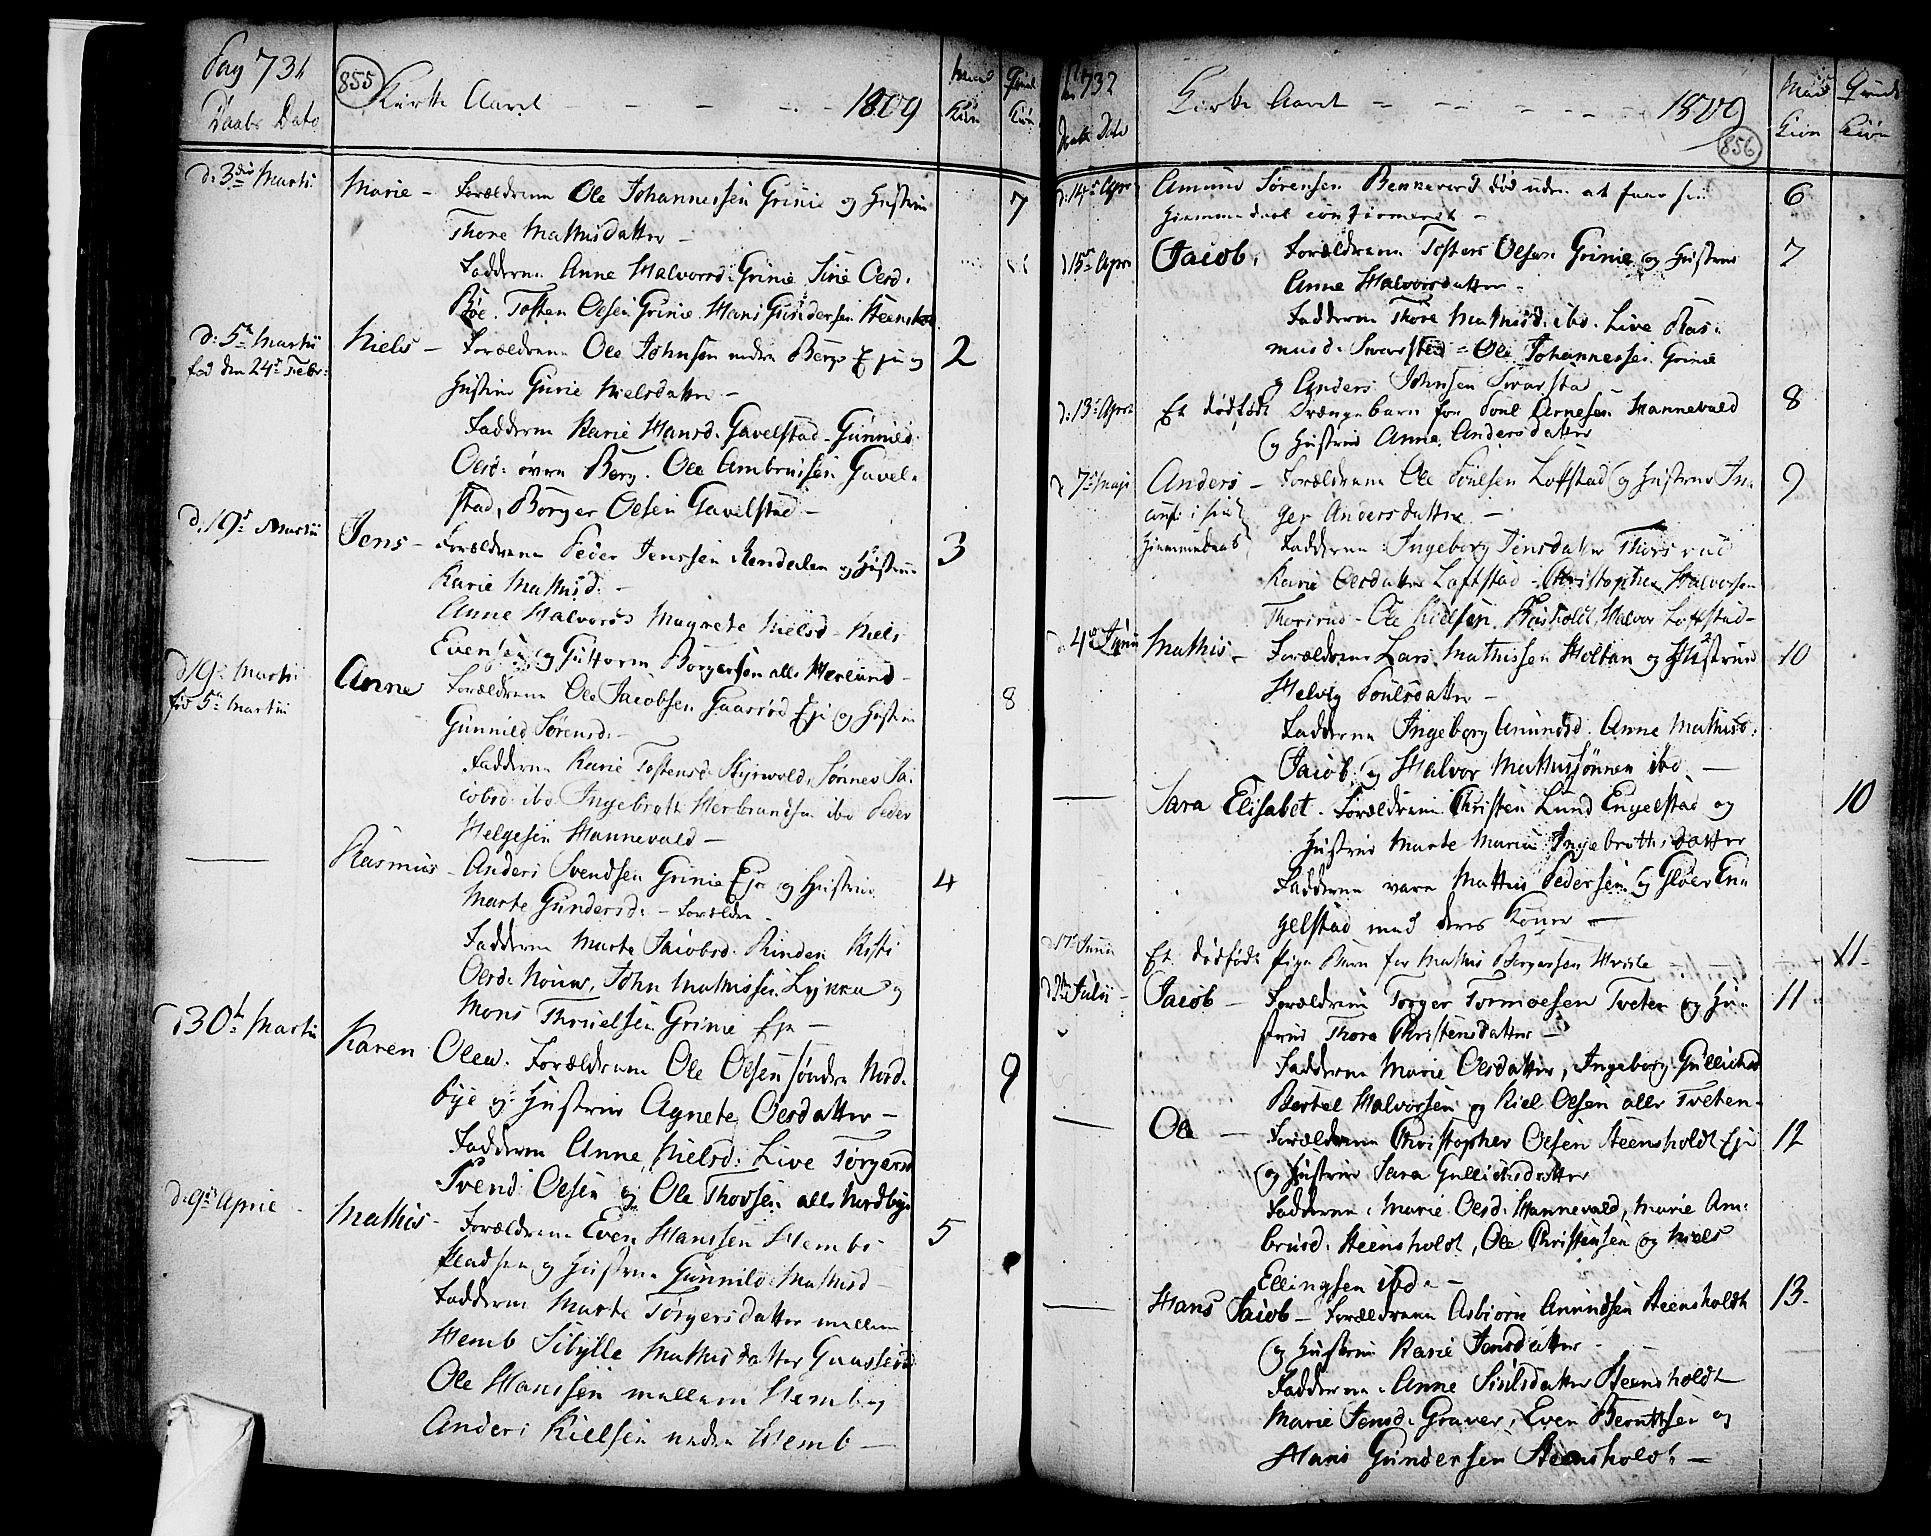 Pag 731
855
Kirke Aaret - - - - 1809
Mand Kiøn
Qvind Kiøn
Daabs Dato
d. 3die Martii Marie - Forældrene Ole Johannessen Grinie og Hustrue 7
Thore Mathisdatter -
Fadderne Anne Halvorsd: Grinie Sirie Olesd:
Bøe. Tosten Olsen Grinie. Hans Gundersen Steensholt
d. 5te Martii Niels - Forældrene Ole Johnsen nedre Berge Eje og 2
fød den 24de Febr:
Hustrue Gurie Nielsdatter -
Fadderne Karie Hansd: Gavelstad. Gunnild
Olesd: øvre Berg. Ole Ambrussen Gavel-
stad, Borger Olesen Gavelstad -
d. 19de Martii Jens - Forældrene Peder Jenssen Rendalen og Hustrue 3
Karie Mathisd: -
Anne Halvorsd Magnete Nielsd - Niels
Evensen og Guttorm Borgersen alle Herlund -
d 19de Martii Anne Forældrene Ole Jacobsen Gaasrød Eje og Hustrue 8
fød 5te Martii
Gunnild Sørensd: -
Fadderne Karie Tostensd. Styrvold, Sønnev Ja-
cobsd: ibd. Ingebrett Herbrandsen ibd Peder
Helgesen Hannevald -
Rasmus - Anders Svendsen Grinie Eje og Hustrue 4
Marte Gundersd: - Forældre -
Fadderne Marte Jacobsd: Rinden Kisti
Olesd: John Mathissen Lykka og
Mons Thruelsen Grinie Eje -
d 30te Martii Karen Olea. Forældrene Ole Olsen søndre Nord- 9
bye og Hustrue Agnete Olesdatter -
Fadderne Anne Nielsd: Live Torgersd
Svend Olsen og Ole Thovsen alle Nordbye
d. 9de Aprile - Mathis - Forældrene Even Hanssen Hembs- 5
pladsen og Hustrue Gunnild Mathisd -
Fadderne Marte Torgersdatter mellem
Hemb Sibylle Mathisdatter Gaasserød
Ole Hanssen mellem Hemb og
Anders Kielsen neden Hemb -
732
Kirke Aaret - - - - - 1809
856
Mands Kiøn
Qvinde Kiøn
Daabs Dato
d. 14de Apr: Amund Sørensen Bennevord død uden at faae sin 6
Hiemmedaab confirmeret -
d 15de Apr: Jacob, Forældrene Tosten Olsen Grinie og Hustrue 7
Anne Halvorsdatter -
Fadderne Thore Mathisd: ibd. Live Ras-
musd: Svarsted - Ole Johannessen Grinie
og Anders Johnsen Svarstad
d. 13de April Et dødfødt Drængebarn for Poul Arnesen Hannevald 8
og Hustrue Anne Andersdatter
d 7de Maji Anders - Forældrene Ole Poulsen Loftstad og Hustrue In- 9
conf: i sin Hiemmedaab
ger Andersdatter -
Fadderne Ingeborg Jensdatter Thorsrud
Karie Olesdatter Loftstad - Christopher Halvorsen
Thorsrud - Ole Kielsen, Halvor Loftstad -
d. 4de Junii Mathis - Forældrene Lars Mathissen Holtan og Hustrue 10
Helvig Poulsdatter -
Fadderne Ingeborg Amundsd. Anne Mathisd:
Jacob og Halvor Mathissønner ibd -
Sara Elisabet. Forældrene Christen Lund Engelstad og 10
Hustrue Marte Marie Ingebrethsdatter
Fadderne vare Mathis Pedersen og Gloer En-
gelstad med deres Koner -
d 17de Junii Et dødfødt Pige Barn for Mathis Borgersen Hvisle - 11.
d 2den Julii - Jacob - Forældrene Torger Tormoesen Tveten og Hu- 11
strue Thora Christensdatter -
Fadderne Marie Olesdatter, Ingeborg Gullichsd
Bertel Halvorsen og Kiel Olsen alle Tveten -
Ole - Forældrene Christopher Olesen Steensholdt Eje 12
og Hustrue Sara Gullichsdatter
Fadderne: Marie Olesd: Hannevald, Marie Am-
brusd: Steensholdt, Ole Christensen og Niels
Ellingsen ibd. -
Hans Jacob - Forældrene Asbiørn Amundsen Steensholdt 13.
og Hustrue Karie Jensdatter -
Fadderne: Anne Poulsdatter Steensholdt
Marie Jensd: Graver, Even Berntsen og
Hans Gundersen Steensholdt -